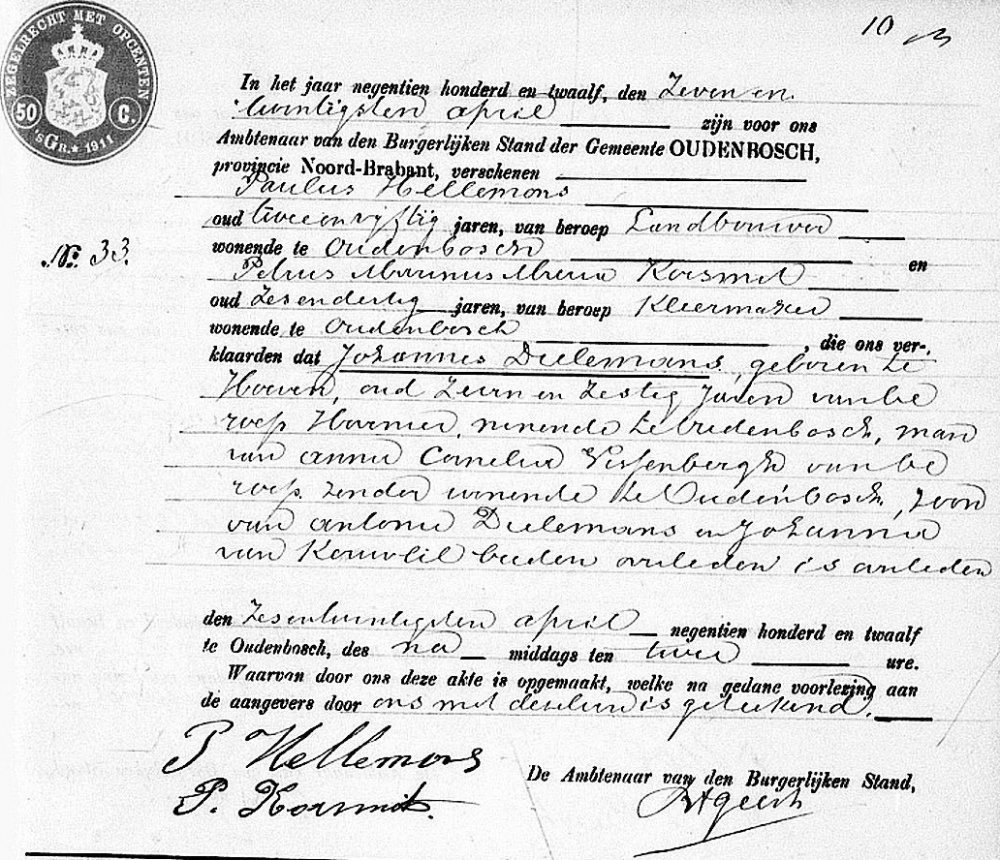 10
ZEGELRECHT MET OPCENTEN
50 C.
'sGR. * 1911
In het jaar negentien honderd en twaalf, den Zeven en
twintigsten april zijn voor ons
Ambtenaar van den Burgerlijken Stand der Gemeente OUDENBOSCH,
provincie Noord-Brabant, verschenen
Paulus Hellemons
oud tweeenvijftig jaren, van beroep Landbouwer
No. 33.
wonende te Oudenbosch en
Petrus Marinus Maria Korsmit
oud zesendertig jaren, van beroep Kleermaker
wonende te Oudenbosch, die ons ver-
klaarden dat Johannes Dielemans, geboren te
Hoeven, oud zeven en zestig Jaren van be
roep, wonende te Oudenbosch, man
van anna Cornelia van be
roep zonder wonende te Oudenbosch, zoon
van antonie Dielemans en Johanna
van overleden is
den Zesentwintigsten april negentien honderd en twaalf
te Oudenbosch, des na middags ten twee ure.
Waarvan door ons deze akte is opgemaakt, welke na gedane voorlezing aan
de aangevers door ons met dezelven is geteekend.
P. Hellemons
De Ambtenaar van den Burgerlijken Stand,
P. Korsmit.